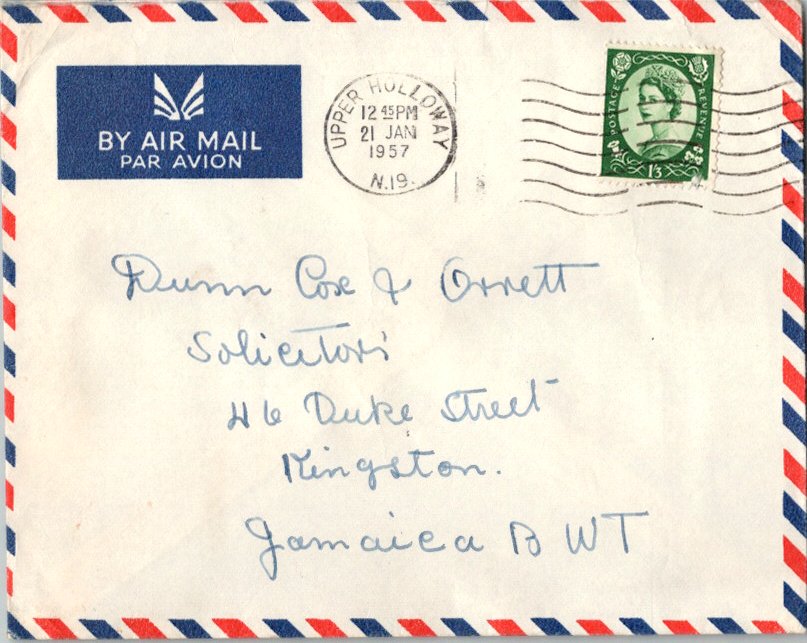 BY AIR MAIL
PAR AVION
UPPER HOLLOWAY
12 45PM
21 JAN
1957
N.19.
POSTAGE
REVENUE
1/3
Dunn Cox & Orrett
Solicitors
46 Duke Street
Kingston.
Jamaica B W I